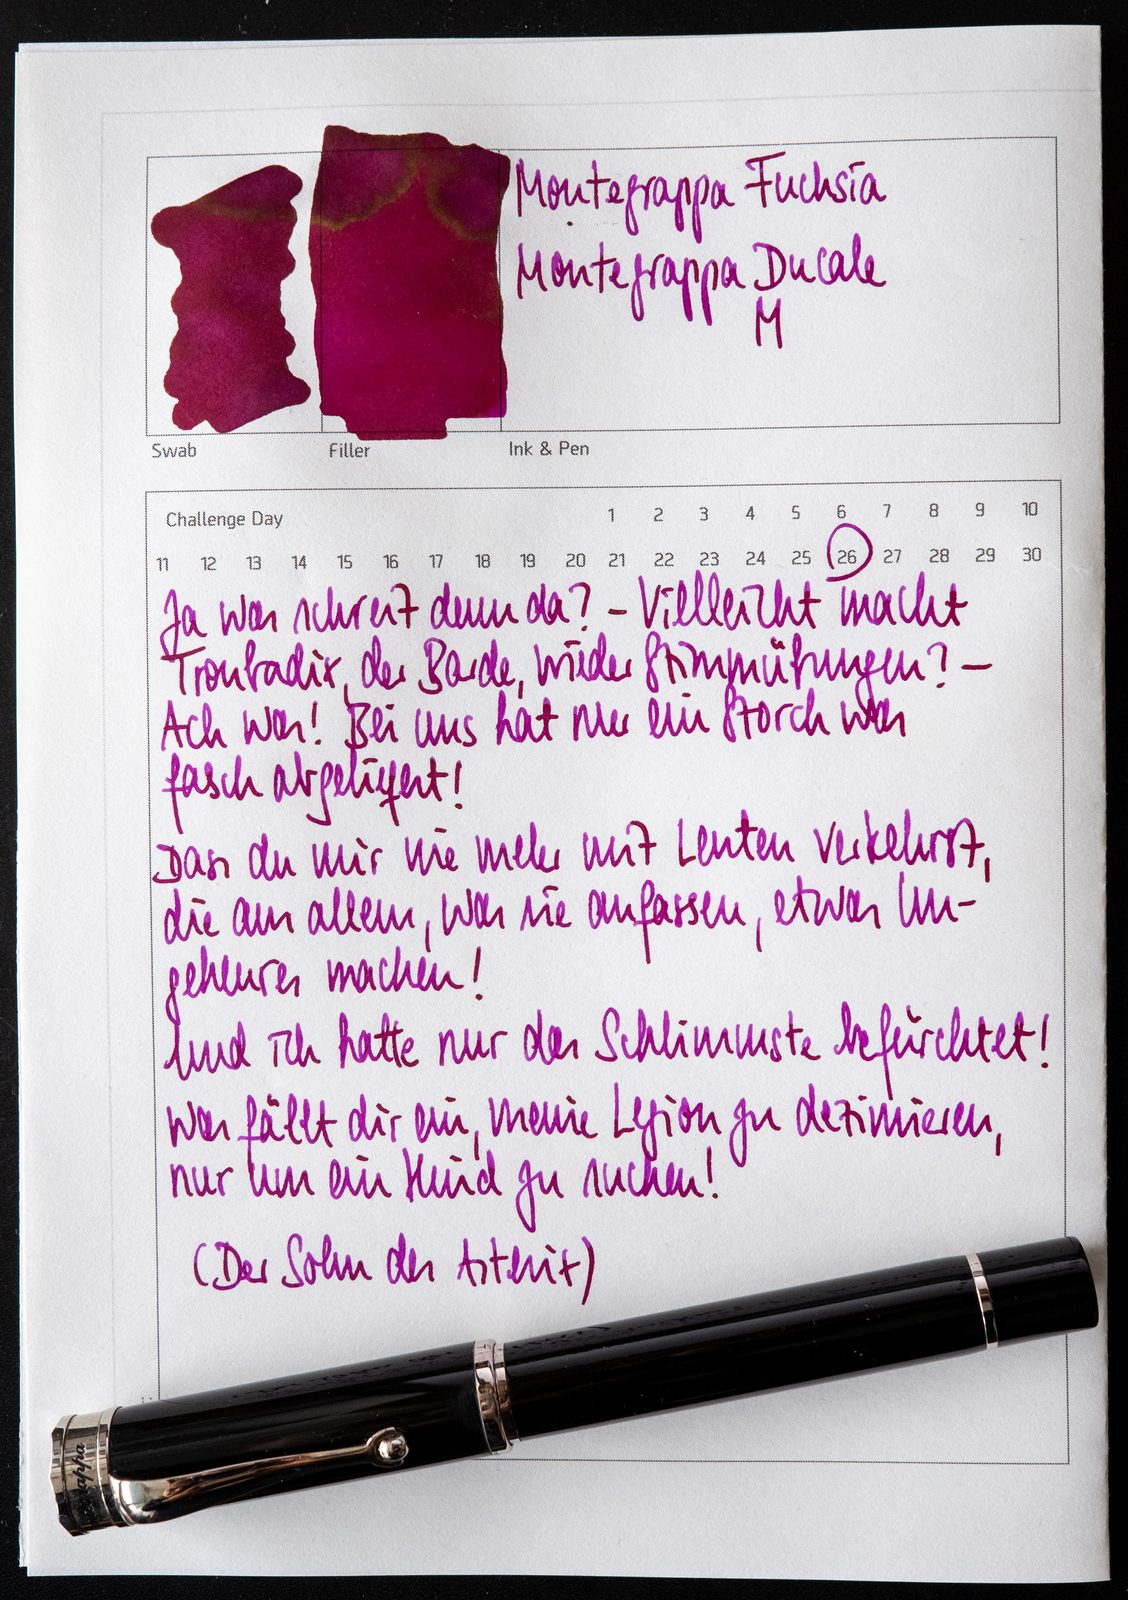 Montegrappa Fuchsia
Montegrappa Ducale
M
Swab Filler Ink & Pen
Challenge Day 1 2 3 4 5 6 7 8 9 10
11 12 13 14 15 16 17 18 19 20 21 22 23 24 25 26 27 28 29 30
Ja was schreit denn da? – Vielleicht macht
Troubadix, der Barde, wieder Stimmübungen? –
Ach was! Bei uns hat nur ein Storch was
fasch abgeliefert!
Dass du mir nie mehr mit Leuten verkehrst,
die aus allem, was sie anfassen, etwas Un-
geheures machen!
Und ich hatte nur das Schlimmste befürchtet!
Was fällt dir ein, meine Legion zu dezimieren,
nur um ein Kind zu suchen!
(Der Sohn des Asterix)